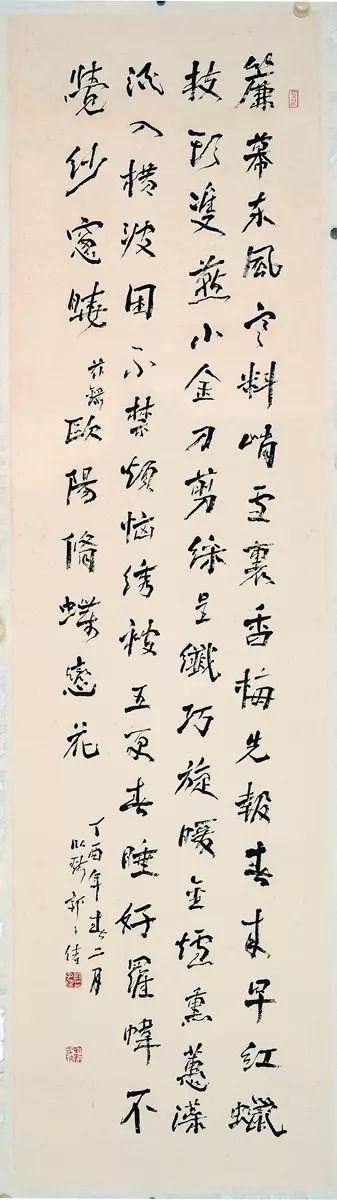 簾幕东風寒料峭雪裏香梅先報春來早紅蠟
枝頭雙燕小金刀剪綵呈纖巧旋暖金爐熏蕙藻
酒入横波困不禁煩惱绣被五更春睡好羅幃不
覺紗窓曉兹録歐陽脩蝶戀花
丁酉年春二月
郭